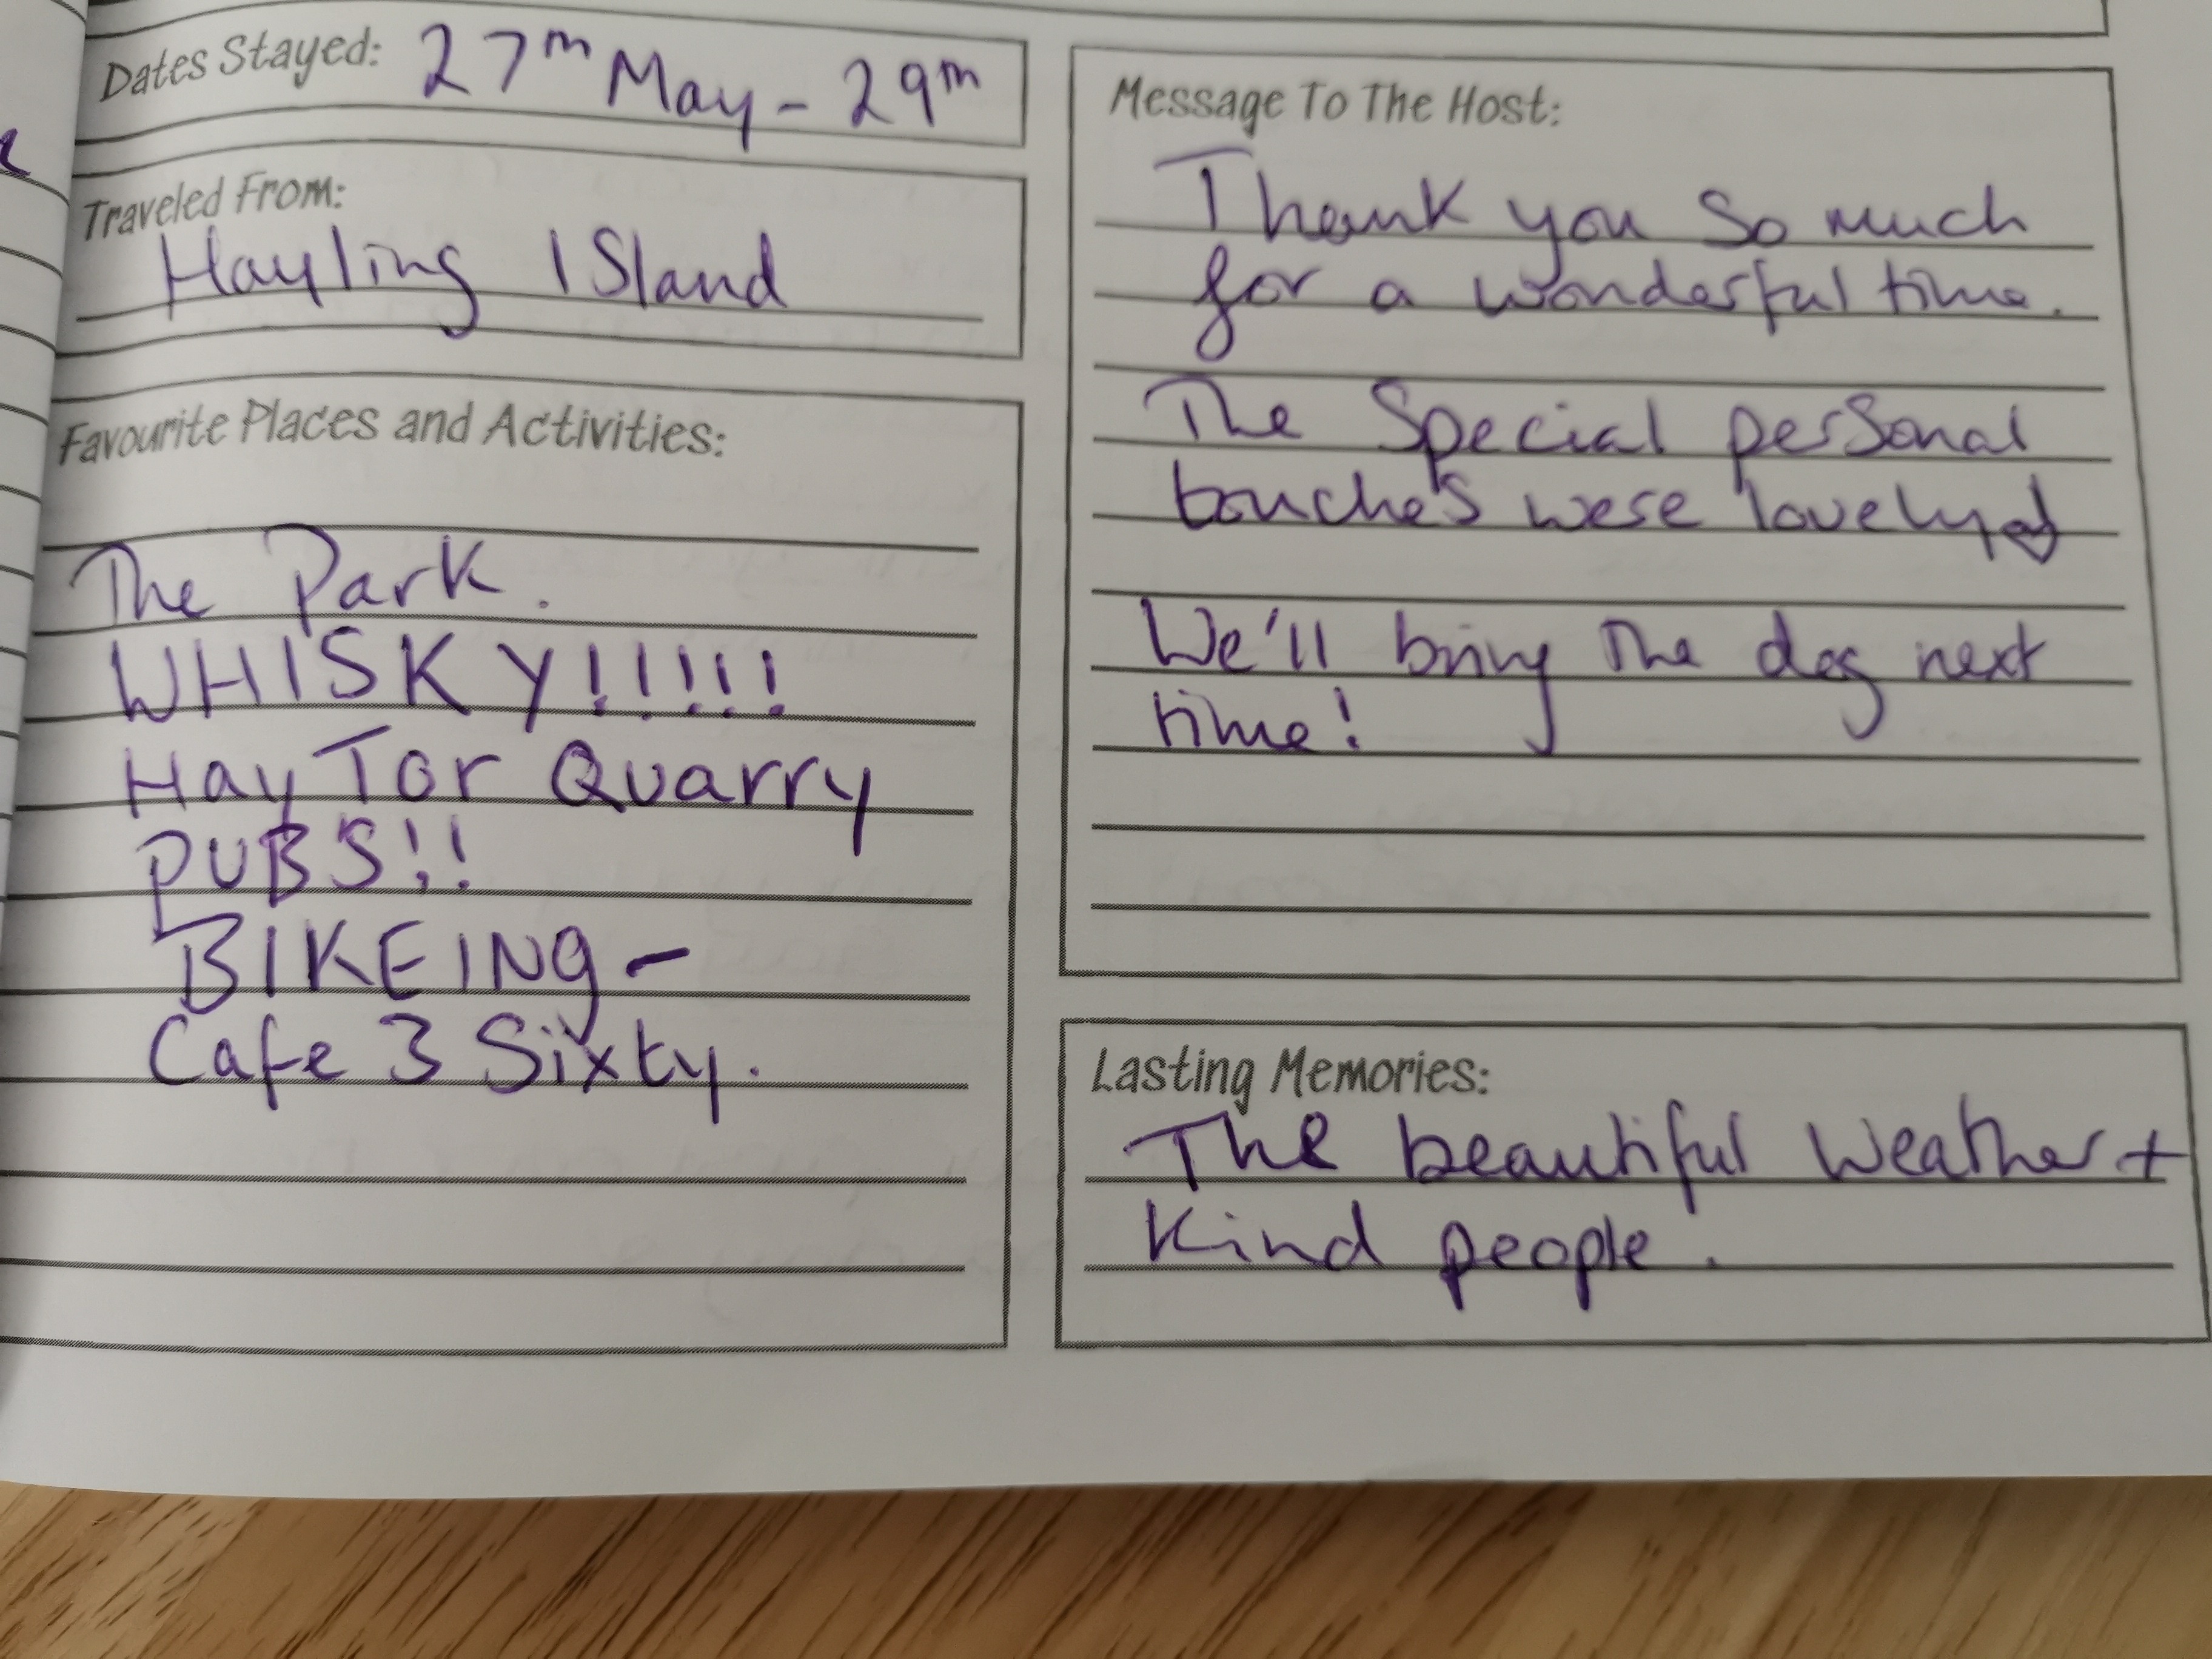 Dates Stayed: 27th May - 29th
Traveled From:
Hayling Island
Favourite Places and Activities:
The Park.
WHISKY!!!!!
Hay Tor Quarry
PUBS!!
BIKEING -
Cafe 3 Sixty.
Message To The Host:
Thank you so much
for a wonderful time.
The Special personal
touches were lovely
We'll bring the dog next
time!
Lasting Memories:
The beautiful weather +
Kind people.